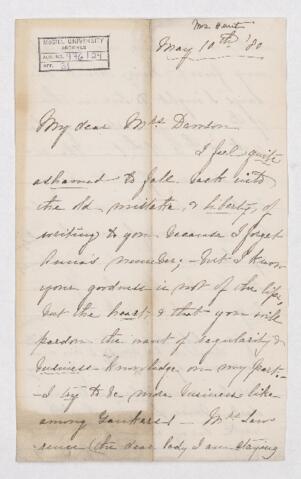 Mrs Hunt
McGILL UNIVERSITY
ARCHIVES
ACC. NO. 927
REF. 21
May 10th '80
My dear Mrs Dawson
I feel quite
ashamed to fall back into
the old mistake & liberty, of
writing to you because I forget
Anna's number; — but I know
your goodness is not of the lips,
but the heart, & that you will
pardon the want of regularity &
business-knowledge on my part —
— I try to be more business like
among Yankees! — Mrs Law-
rence (the dear lady I am staying